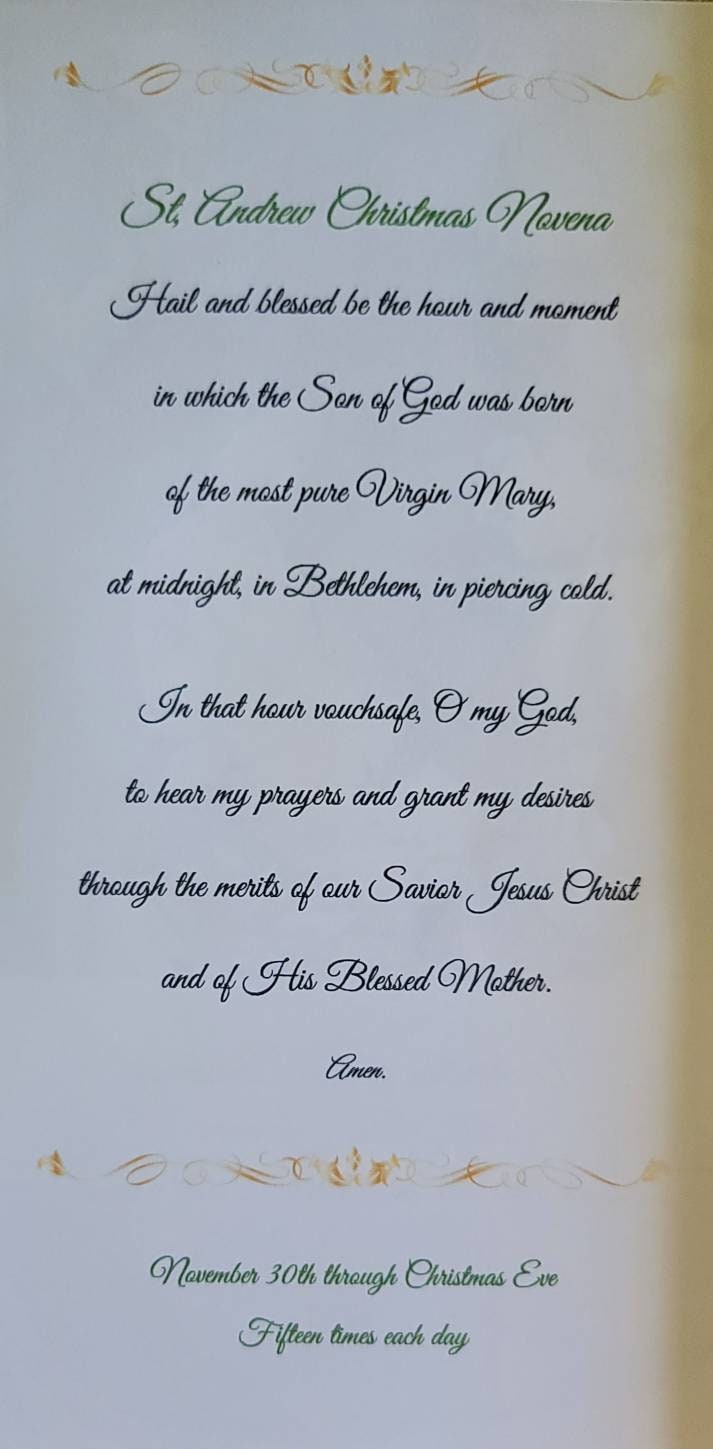 St. Andrew Christmas Novena
Hail and blessed be the hour and moment
in which the Son of God was born
of the most pure Virgin Mary,
at midnight, in Bethlehem, in piercing cold.
In that hour vouchsafe, O my God,
to hear my prayers and grant my desires
through the merits of our Savior Jesus Christ
and of His Blessed Mother.
Amen.
November 30th through Christmas Eve
Fifteen times each day